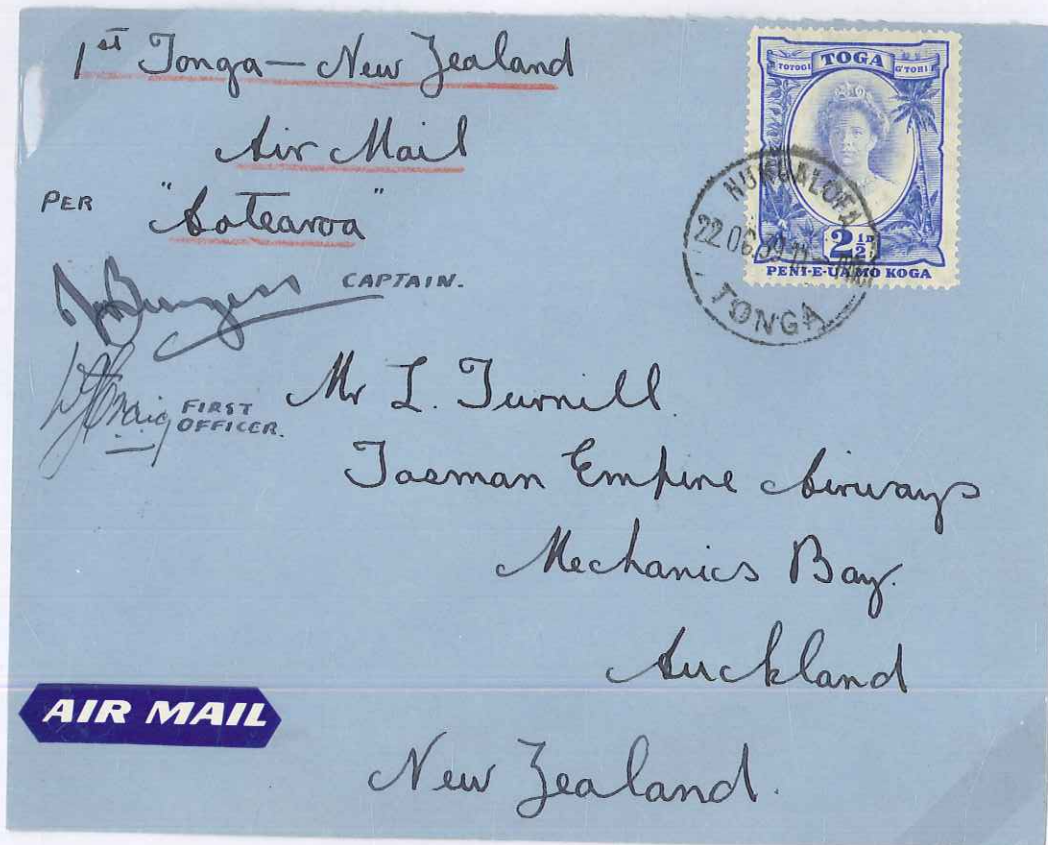 1st Tonga — New Zealand
Air Mail
PER "Aotearoa"
CAPTAIN.
FIRST
OFFICER.
TOGA
TOTOGI
2½D
PENI-E-UA MO KOGA
NUKUALOFA
22.06.39
TONGA
Mr L. Turnill.
Tasman Empire Airways
Mechanics Bay.
Auckland
New Zealand.
AIR MAIL